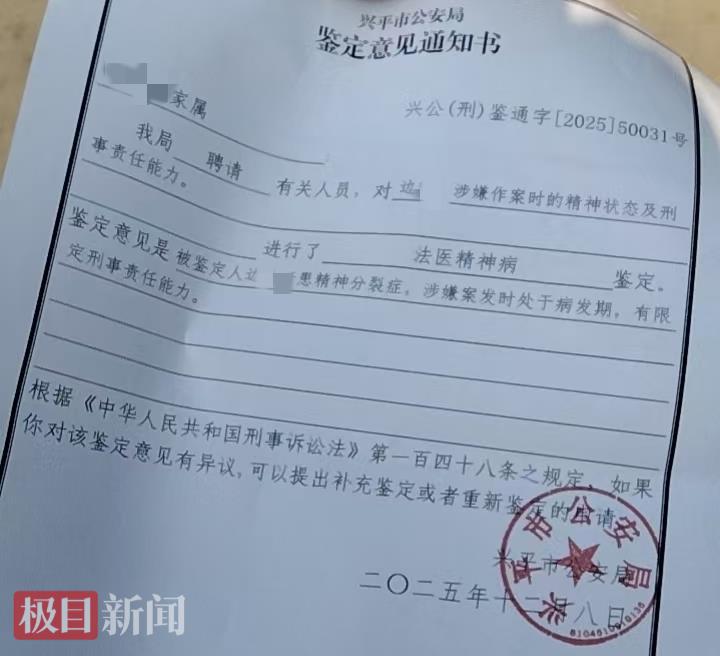 兴平市公安局
鉴定意见通知书
家属
兴公(刑)鉴通字[2025]50031号
我局 聘请 有关人员，对 边 涉嫌作案时的精神状态及刑
事责任能力。
进行了 法医精神病 鉴定。
鉴定意见是 被鉴定人边 患精神分裂症，涉嫌案发时处于病发期，有限
定刑事责任能力。
根据《中华人民共和国刑事诉讼法》第一百四十八条之规定，如果
你对该鉴定意见有异议，可以提出补充鉴定或者重新鉴定的申请。
兴平市公安局
二〇二五年十二月八日
兴平市公安局
极目新闻